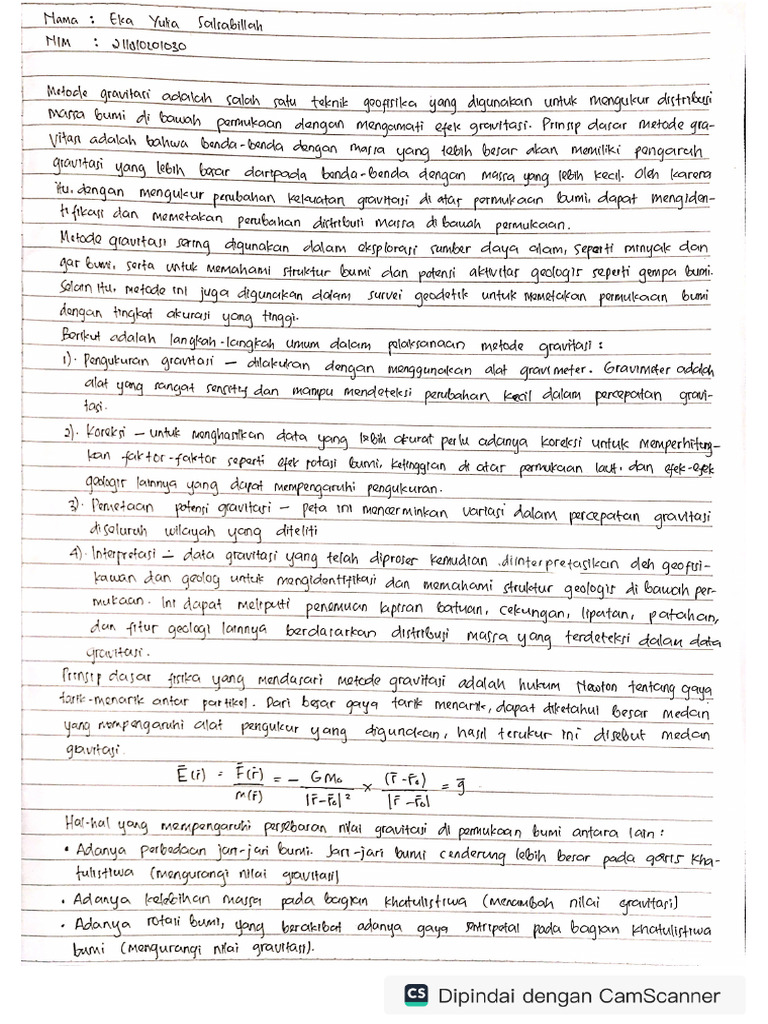 Nama : Eka Yulia Salsabillah
NIM : 211010201030
Metode gravitasi adalah salah satu teknik geofisika yang digunakan untuk mengukur distribusi
massa bumi di bawah permukaan dengan mengamati efek gravitasi. Prinsip dasar metode gra-
vitasi adalah bahwa benda-benda dengan massa yang lebih besar akan memiliki pengaruh
gravitasi yang lebih besar daripada benda-benda dengan massa yang lebih kecil. Oleh karena
itu, dengan mengukur perubahan kekuatan gravitasi di atas permukaan bumi, dapat mengiden-
tifikasi dan memetakan perubahan distribusi massa di bawah permukaan.
Metode gravitasi sering digunakan dalam eksplorasi sumber daya alam, seperti minyak dan
gas bumi, serta untuk memahami struktur bumi dan potensi aktivitas geologis seperti gempa bumi.
Selain itu, metode ini juga digunakan dalam survei geodetik untuk memetakan permukaan bumi
dengan tingkat akurasi yang tinggi.
Berikut adalah langkah-langkah umum dalam pelaksanaan metode gravitasi :
1). Pengukuran gravitasi – dilakukan dengan menggunakan alat gravimeter. Gravimeter adalah
alat yang sangat sensitif dan mampu mendeteksi perubahan kecil dalam percepatan gravi-
tasi.
2). Koreksi – untuk menghasilkan data yang lebih akurat perlu adanya koreksi untuk memperhitung-
kan faktor-faktor seperti efek rotasi bumi, ketinggian di atas permukaan laut, dan efek-efek
geologis lainnya yang dapat mempengaruhi pengukuran.
3). Pemetaan potensi gravitasi – peta ini mencerminkan variasi dalam percepatan gravitasi
diseluruh wilayah yang diteliti
4). Interpretasi – data gravitasi yang telah diproses kemudian diinterpretasikan oleh geofisi-
kawan dan geolog untuk mengidentifikasi dan memahami struktur geologis di bawah per-
mukaan. Ini dapat meliputi penemuan lapisan batuan, cekungan, lipatan, patahan,
dan fitur geologi lainnya berdasarkan distribusi massa yang terdeteksi dalam data
gravitasi.
Prinsip dasar fisika yang mendasari metode gravitasi adalah hukum Newton tentang gaya
tarik-menarik antar partikel. Dari besar gaya tarik menarik, dapat diketahui besar medan
yang mempengaruhi alat pengukur yang digunakan, hasil terukur ini disebut medan
gravitasi.
E̅(r̅) = F̅(r̅) / m(r̅) = – GM₀ / |r̅-r̅₀|² × (r̅-r̅₀) / |r̅-r̅₀| = g̅
Hal-hal yang mempengaruhi persebaran nilai gravitasi di permukaan bumi antara lain :
• Adanya perbedaan jari-jari bumi. Jari-jari bumi cenderung lebih besar pada garis kha-
tulistiwa (mengurangi nilai gravitasi)
• Adanya kelebihan massa pada bagian khatulistiwa (menambah nilai gravitasi)
• Adanya rotasi bumi, yang berakibat adanya gaya sentripetal pada bagian khatulistiwa
bumi (mengurangi nilai gravitasi).
CS Dipindai dengan CamScanner